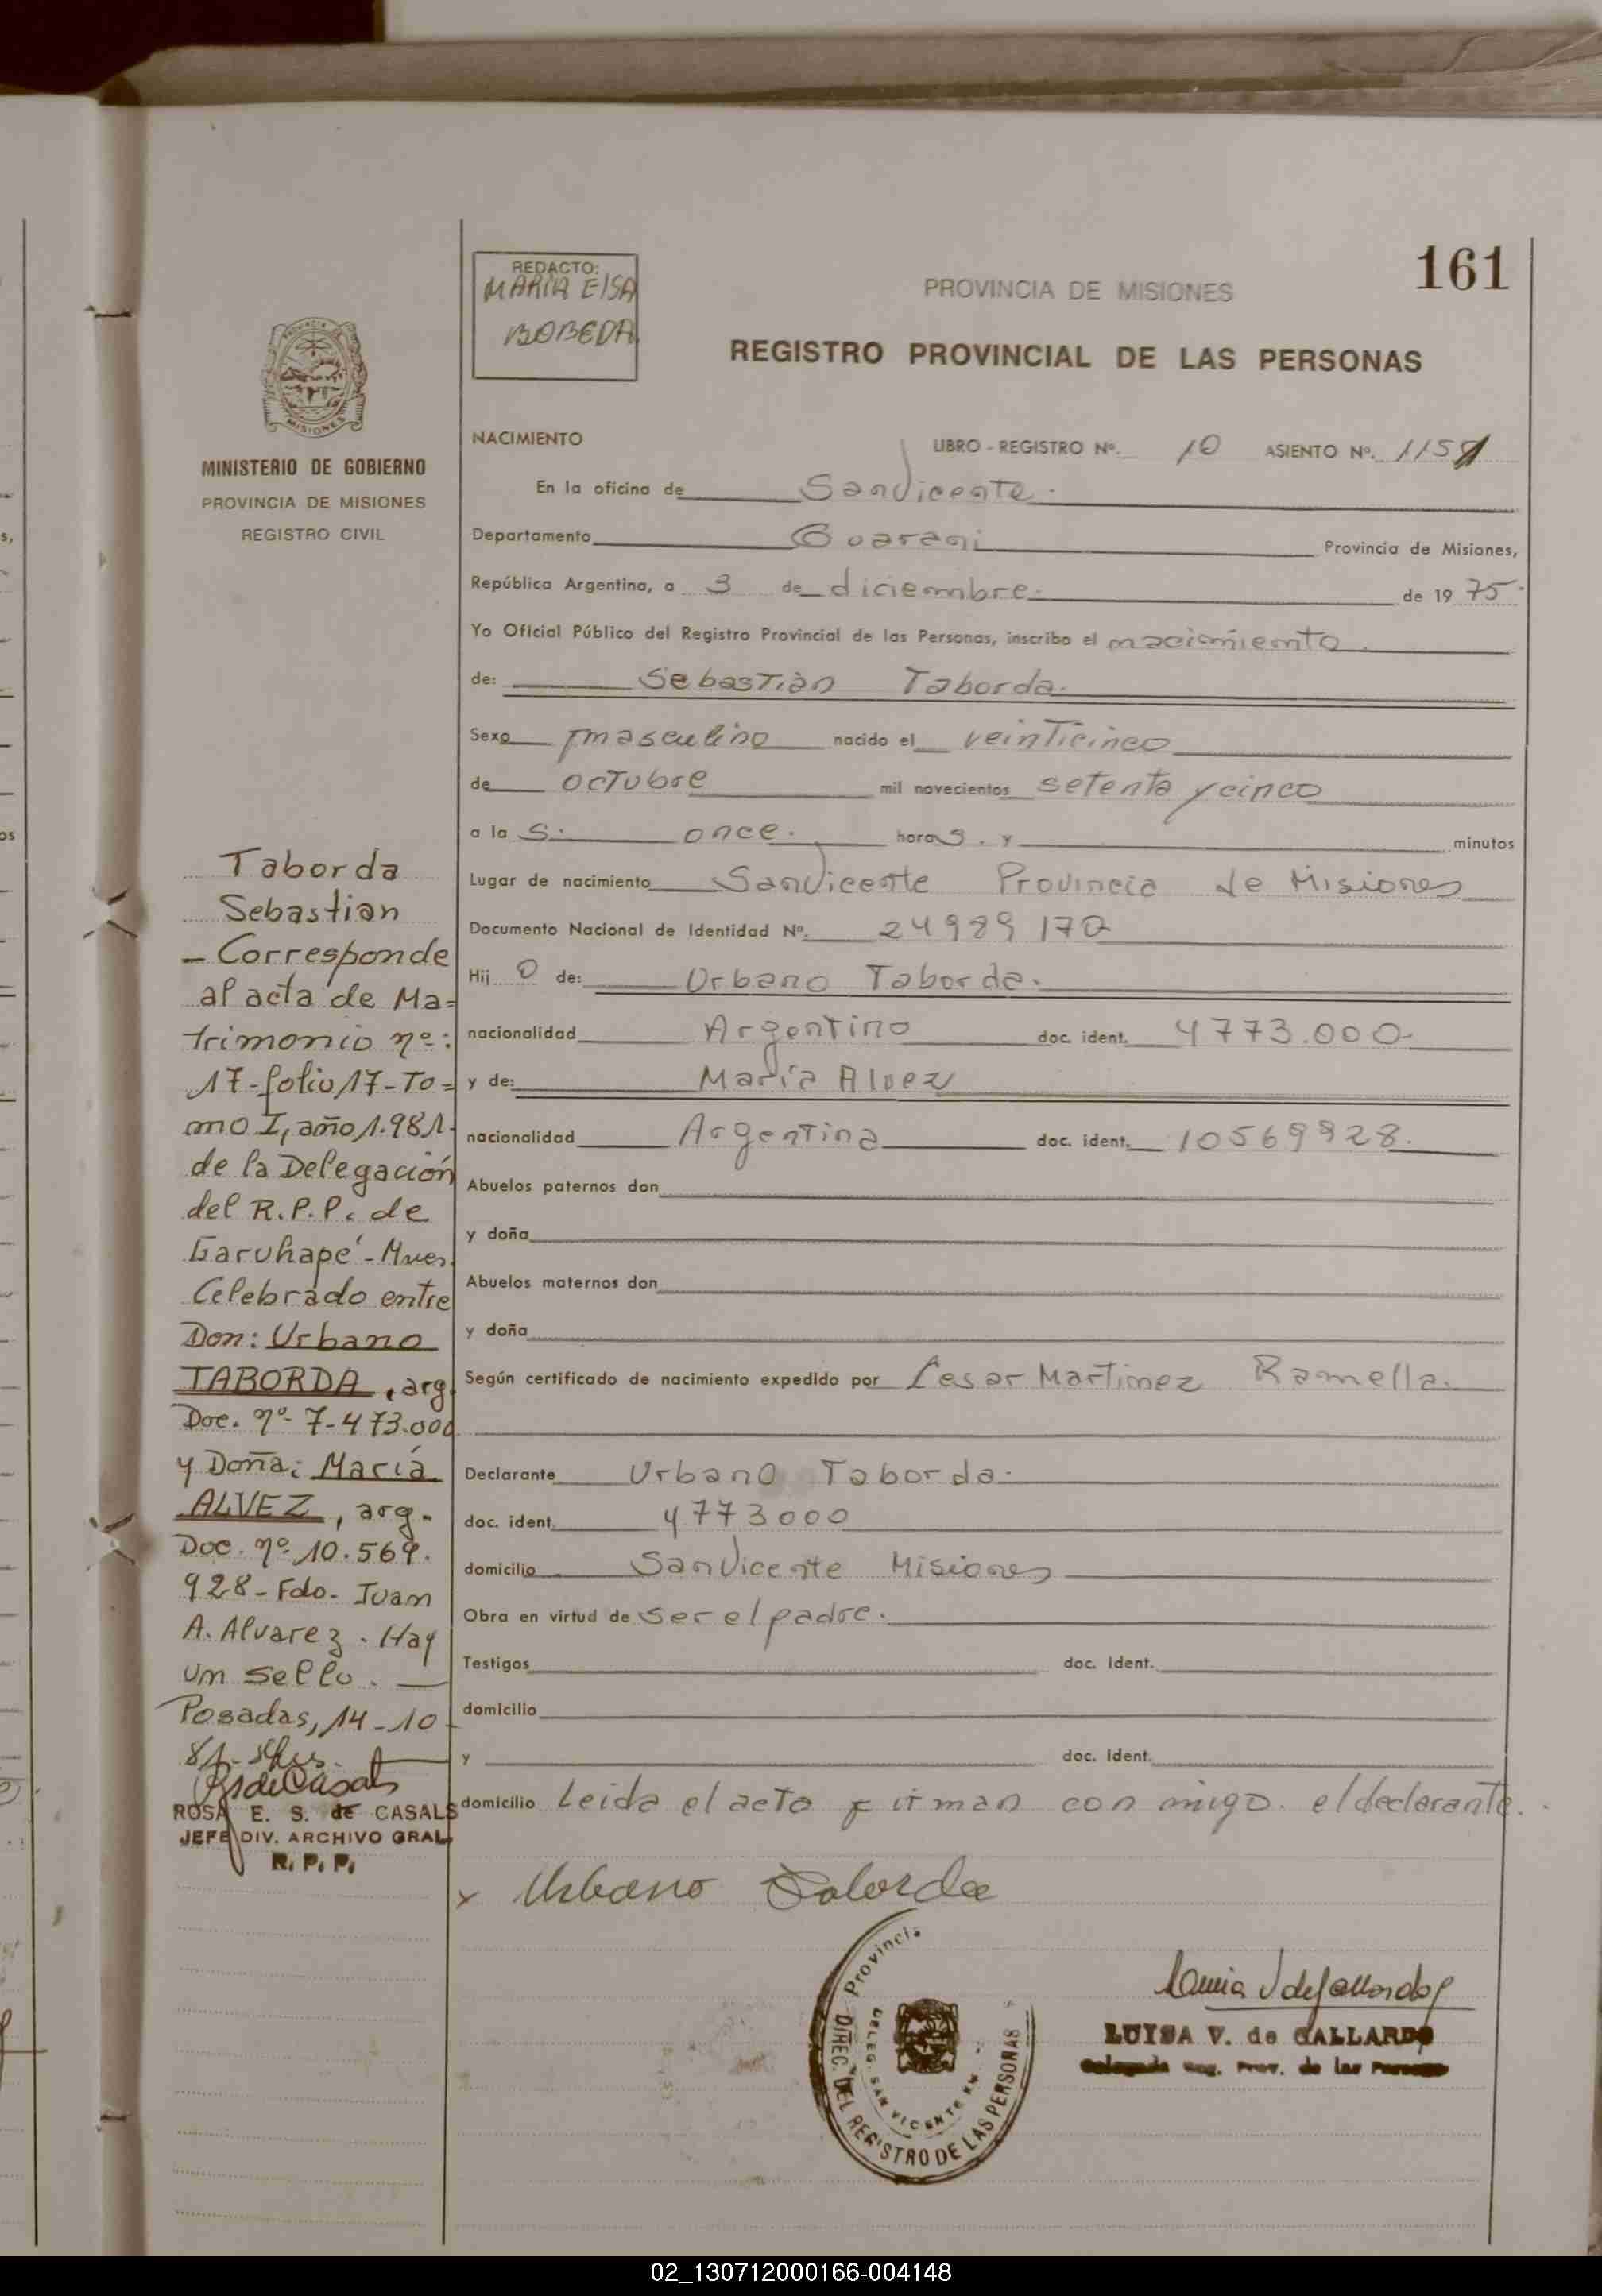 161
REDACTO:
MARIA ElSA
BOBEDA
PROVINCIA DE MISIONES
REGISTRO PROVINCIAL DE LAS PERSONAS
MISIONES
MINISTERIO DE GOBIERNO
PROVINCIA DE MISIONES
REGISTRO CIVIL
NACIMIENTO
LIBRO - REGISTRO Nº. 10 ASIENTO Nº. 1151
En la oficina de San Vicente.
Departamento Guarani Provincia de Misiones,
República Argentina, a 3 de diciembre. de 19 75.
Yo Oficial Público del Registro Provincial de las Personas, inscribo el nacimiento
de: Sebastián Taborda.
Sexo masculino nacido el veinticinco
de octubre mil novecientos setenta y cinco
a la s. once. horas. y minutos
Lugar de nacimiento San Vicente Provincia de Misiones
Documento Nacional de Identidad Nº. 24989170
Hij o de: Urbano Taborda.
nacionalidad Argentino doc. ident. 4773.000
y de: María Alvez
nacionalidad Argentina doc. ident. 10569928.
Abuelos paternos don
y doña
Abuelos maternos don
y doña
Según certificado de nacimiento expedido por Cesar Martinez Ramella.
Declarante Urbano Taborda.
doc. ident. 4773000
domicilio San Vicente Misiones
Obra en virtud de ser el padre.
Testigos doc. ident.
domicilio
y doc. ident.
domicilio Leida el acta firman con migo. el declarante.
x Urbano Taborda
Taborda
Sebastian
- Corresponde
al acta de Ma=
trimonio nº:
17-folio 17-To=
mo I, año 1.981-
de la Delegación
del R.P.P. de
Garuhapé-Mnes.
Celebrado entre
Don: Urbano
TABORDA, arg.
Doc. nº- 7-473.000
y Doña: María
ALVEZ, arg.
Doc. nº 10.569.
928- Fdo- Juan
A. Alvarez. Hay
un sello.
Posadas, 14-10-
81-
ROSA E. S. de CASALS
JEFE DIV. ARCHIVO GRAL.
R. P. P.
Provincia
DIREC. DEL REGISTRO DE LAS PERSONAS
DELEG. SAN VICENTE
LUISA V. de GALLARDO
Delegada Reg. Prov. de las Personas
02_130712000166-004148